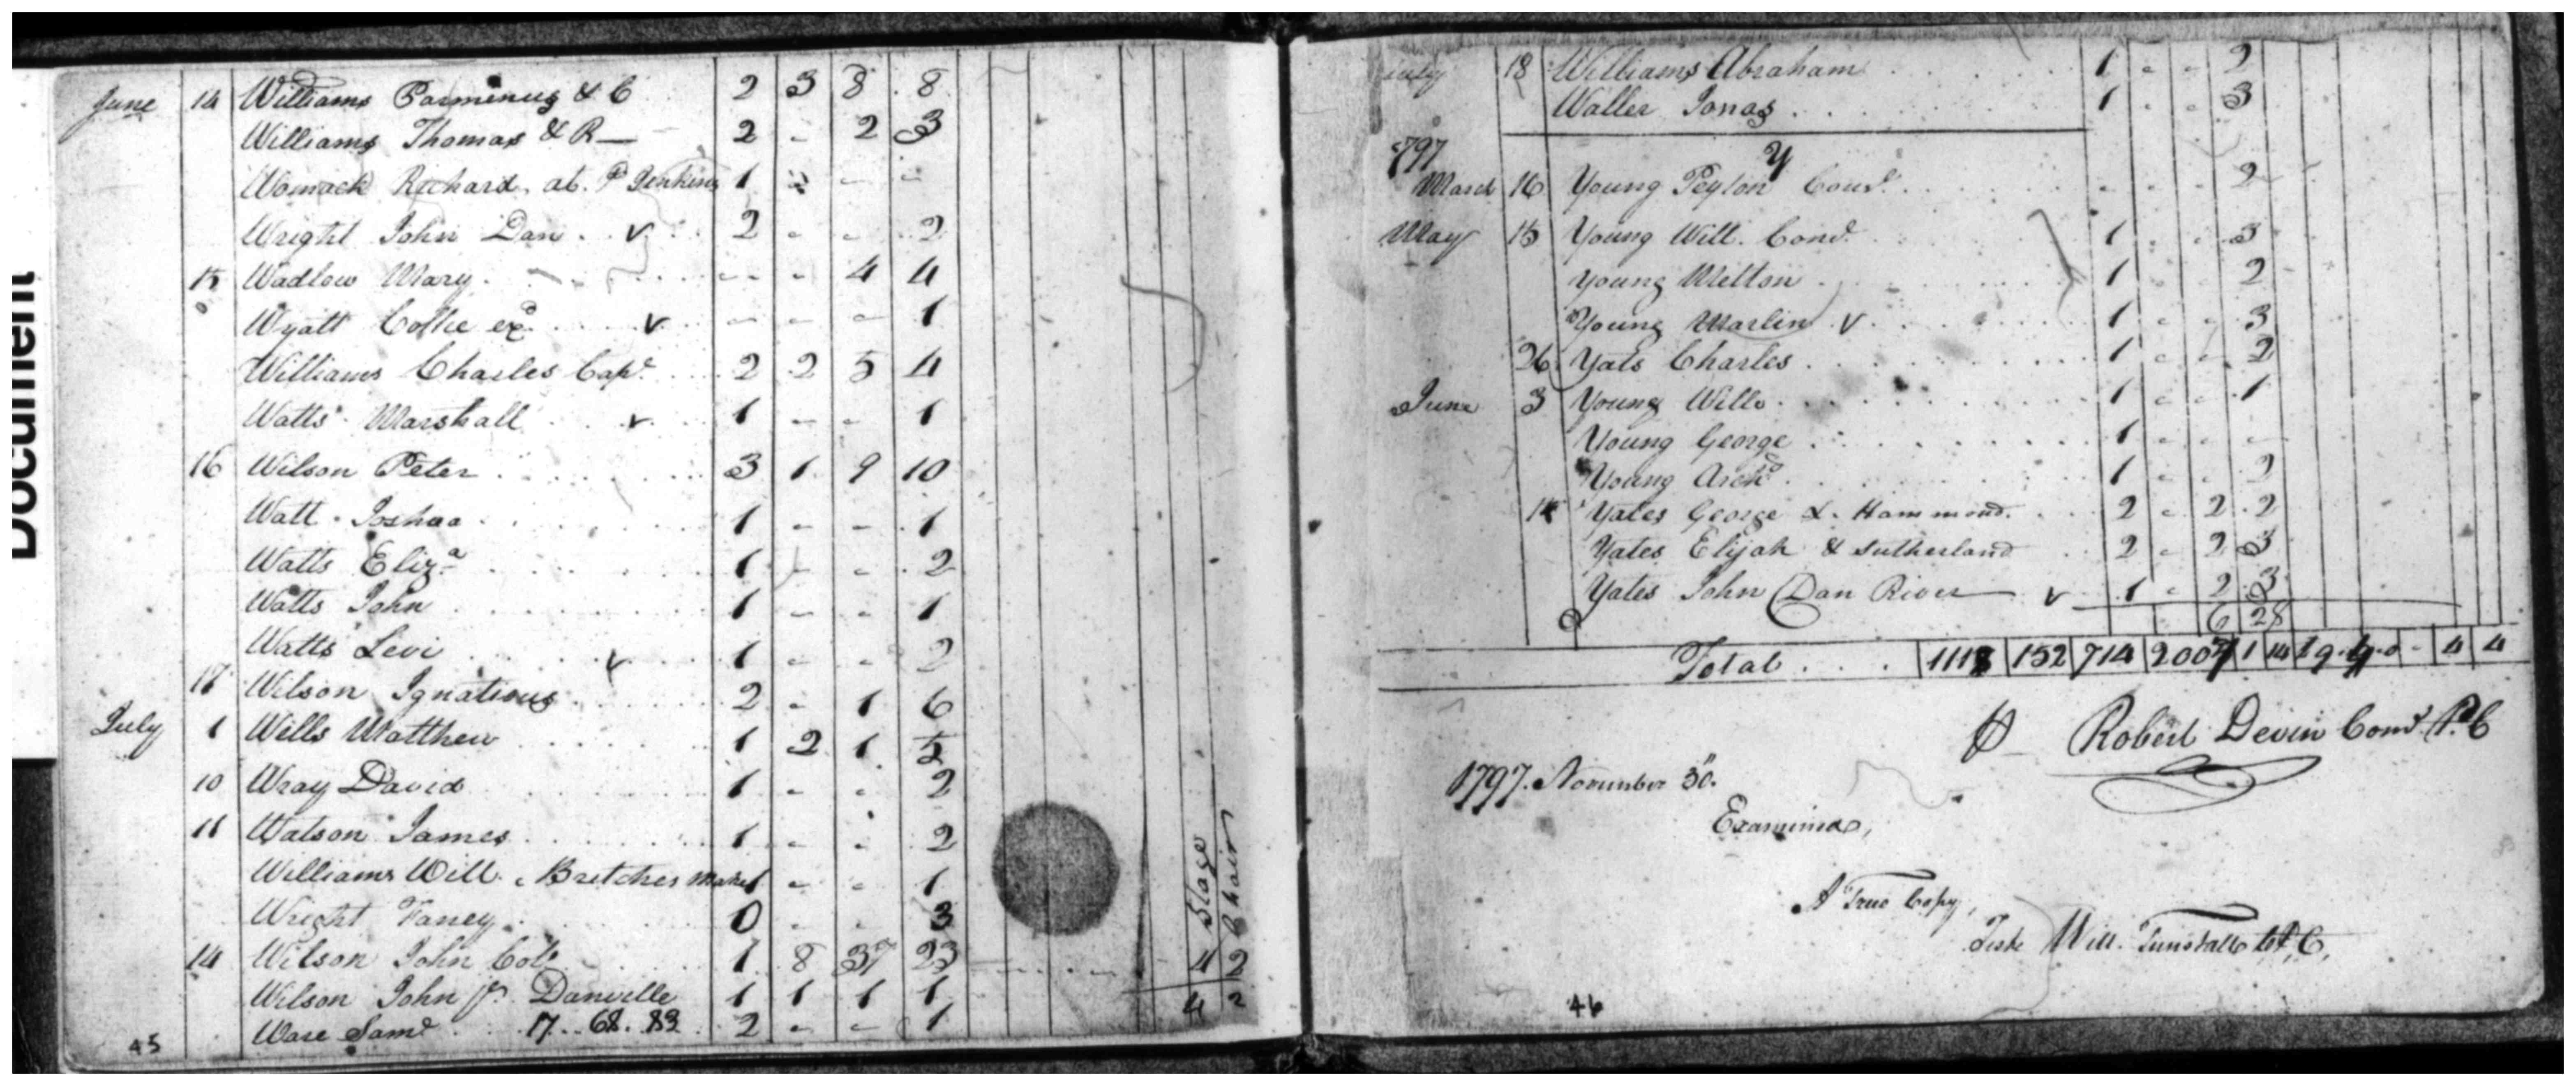 Document
June 14 Williams Parminus & C 2 3 8 8
Williams Thomas & R — 2 - 2 3
Womack Richard. at. P Jenkins 1 2 - -
Wright John Dan . v 2 - - 2
15 Wadlow Mary - - 4 4
Wyatt Collie exr v - - - 1
Williams Charles Capt 2 2 5 4
Watts Marshall v 1 - - 1
16 Wilson Peter 3 1 9 10
Watt Joshua 1 - - 1
Watts Eliza 1 - - 2
Watts John 1 - - 1
Watts Levi v 1 - - 2
17 Wilson Ignatious 2 - 1 6
July 1 Wells Matthew 1 2 1 5
10 Wray David 1 - - 2
11 Watson James 1 - - 2
Williams Will. Britches Maker 1 - - 1
Wright Faney 0 - - 3
Stage Chair
14 Wilson John Colo 1 8 37 23 4 2
Wilson John Jr. Danville 1 1 1 1 4 2
Ware Saml 17. 68. 83 2 - - 1
45
July 18 Williams Abraham 1 - - 2
Waller Jonas 1 - - 3
1797 Y
March 16 Young Peyton Cond. - - - 2
May 15 Young Will. Cond. 1 - - 3
Young Melton 1 - - 2
Young Marlin v 1 - - 3
26 Yats Charles 1 - - 2
June 3 Young Willo 1 - - 1
Young George 1 - - -
Young Archd 1 - - 2
14 Yates George & Hammond. 2 - 2 2
Yates Elijah & Sutherland 2 - 2 3
Yates John Dan River v 1 - 2 3
6 28
Total 1118 152 714 2007 1 14 4 4
Robert Devin Comr. P. C
1797. November 30.
Examined,
A True Copy,
Teste Will. Tunstall Clk, C,
46